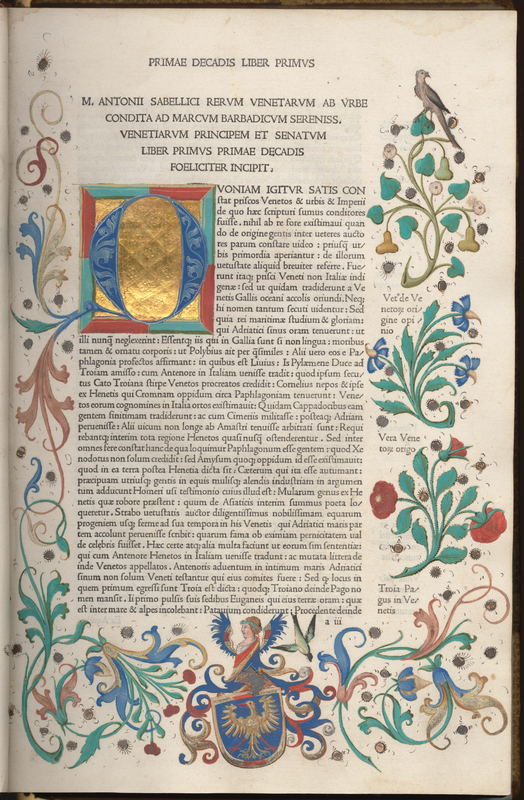 PRIMAE DECADIS LIBER PRIMVS
M. ANTONII SABELLICI RERVM VENETARVM AB VRBE
CONDITA AD MARCVM BARBADICVM SERENISS.
VENETIARVM PRINCIPEM ET SENATVM
LIBER PRIMVS PRIMAE DECADIS
FOELICITER INCIPIT.
QVONIAM IGITVR SATIS CON
stat priscos Venetos & urbis & Imperii
de quo hæc scripturi sumus conditores
fuisse. nihil ab re fore existimaui quan
do de origine gentis inter ueteres aucto
res parum constare uideo : priusq̃ ur/
bis primordia aperiantur : de illorum
uetustate aliquid breuiter referre. Fue/
runt itaq; prisci Veneti non Italiæ indi
genæ : sed ut quidam tradiderunt a Ve
netis Gallis oceani accolis oriundi. Neq;
hi nomen tantum secuti uidentur : Sed
quia rei maritimæ studium & gloriam:
qui Adriatici sinus oram tenuerunt : ut
illi nunq̃ neglexerint : Essentq; iis qui in Gallia sunt si non lingua : moribus
tamen & ornatu corporis : ut Polybius ait per q̃similes : Alii uero eos e Pa/
phlagonia profectos affirmant : in quibus est Liuius : Is Pylæmene Duce ad
Troiam amisso : cum Antenore in Italiam uenisse tradit : quod ipsum secu/
tus Cato Troiana stirpe Venetos procreatos credidit : Cornelius nepos & ipse
ex Henetis qui Cromnam oppidum circa Paphlagoniam tenuerunt : Vene/
tos eorum cognomines in Italia ortos existimauit : Quidam Cappadocibus eam
gentem finitimam tradiderunt : ac cum Cimeriis militasse : posteaq; Adriam
peruenisse : Alii uicum non longe ab Amastri tenuisse arbitrati sunt : Requi
rebantq; interim tota regione Henetos quasi nusq̃ ostenderentur. Sed inter
omnes fere constat hanc de qua loquimur Paphlagonum esse gentem : quod Xe
nodotus non solum credidit : sed Amysum quoq; oppidum id esse existimauit:
quod in ea terra postea Henetia dicta sit : Cæterum qui ita esse autumant :
præcipuum utriusq; gentis in equis mulisq; alendis industriam in argumen
tum adducunt Homeri usi testimonio cuius illud est : Mularum genus ex He
netis quæ robore præstent : quum de Asiaticis interim summus poeta lo/
queretur. Strabo uetustatis auctor diligentissimus nobilissimam equarum
progeniem usq; ferme ad sua tempora in his Venetis qui Adriatici maris par
tem accolunt peruenisse scribit : quarum fama ob eximiam pernicitatem ual
de celebris fuisset. Hæc certe atq; alia multa faciunt ut eorum sim sententiæ:
qui cum Antenore Henetos in Italiam uenisse tradunt : ac mutata littera de
inde Venetos appellatos. Antenoris aduentum in intimum maris Adriatici
sinum non solum Veneti testantur qui eius comites fuere : Sed q̃ locus in
quem primum egressi sunt Troia est dicta : quodq; Troiano deinde Pago no
men mansit. Ii primo pulsis suis sedibus Euganeis qui eius terræ oram : quæ
est inter mare & alpes incolebant : Patauium condiderunt : Procedente deinde
a iii
Vet⁹ de Ve
netoꝝ ori
gine opi/
nio
Vera Vene
toꝝ origo
Troia Pa/
gus in Ve/
netis